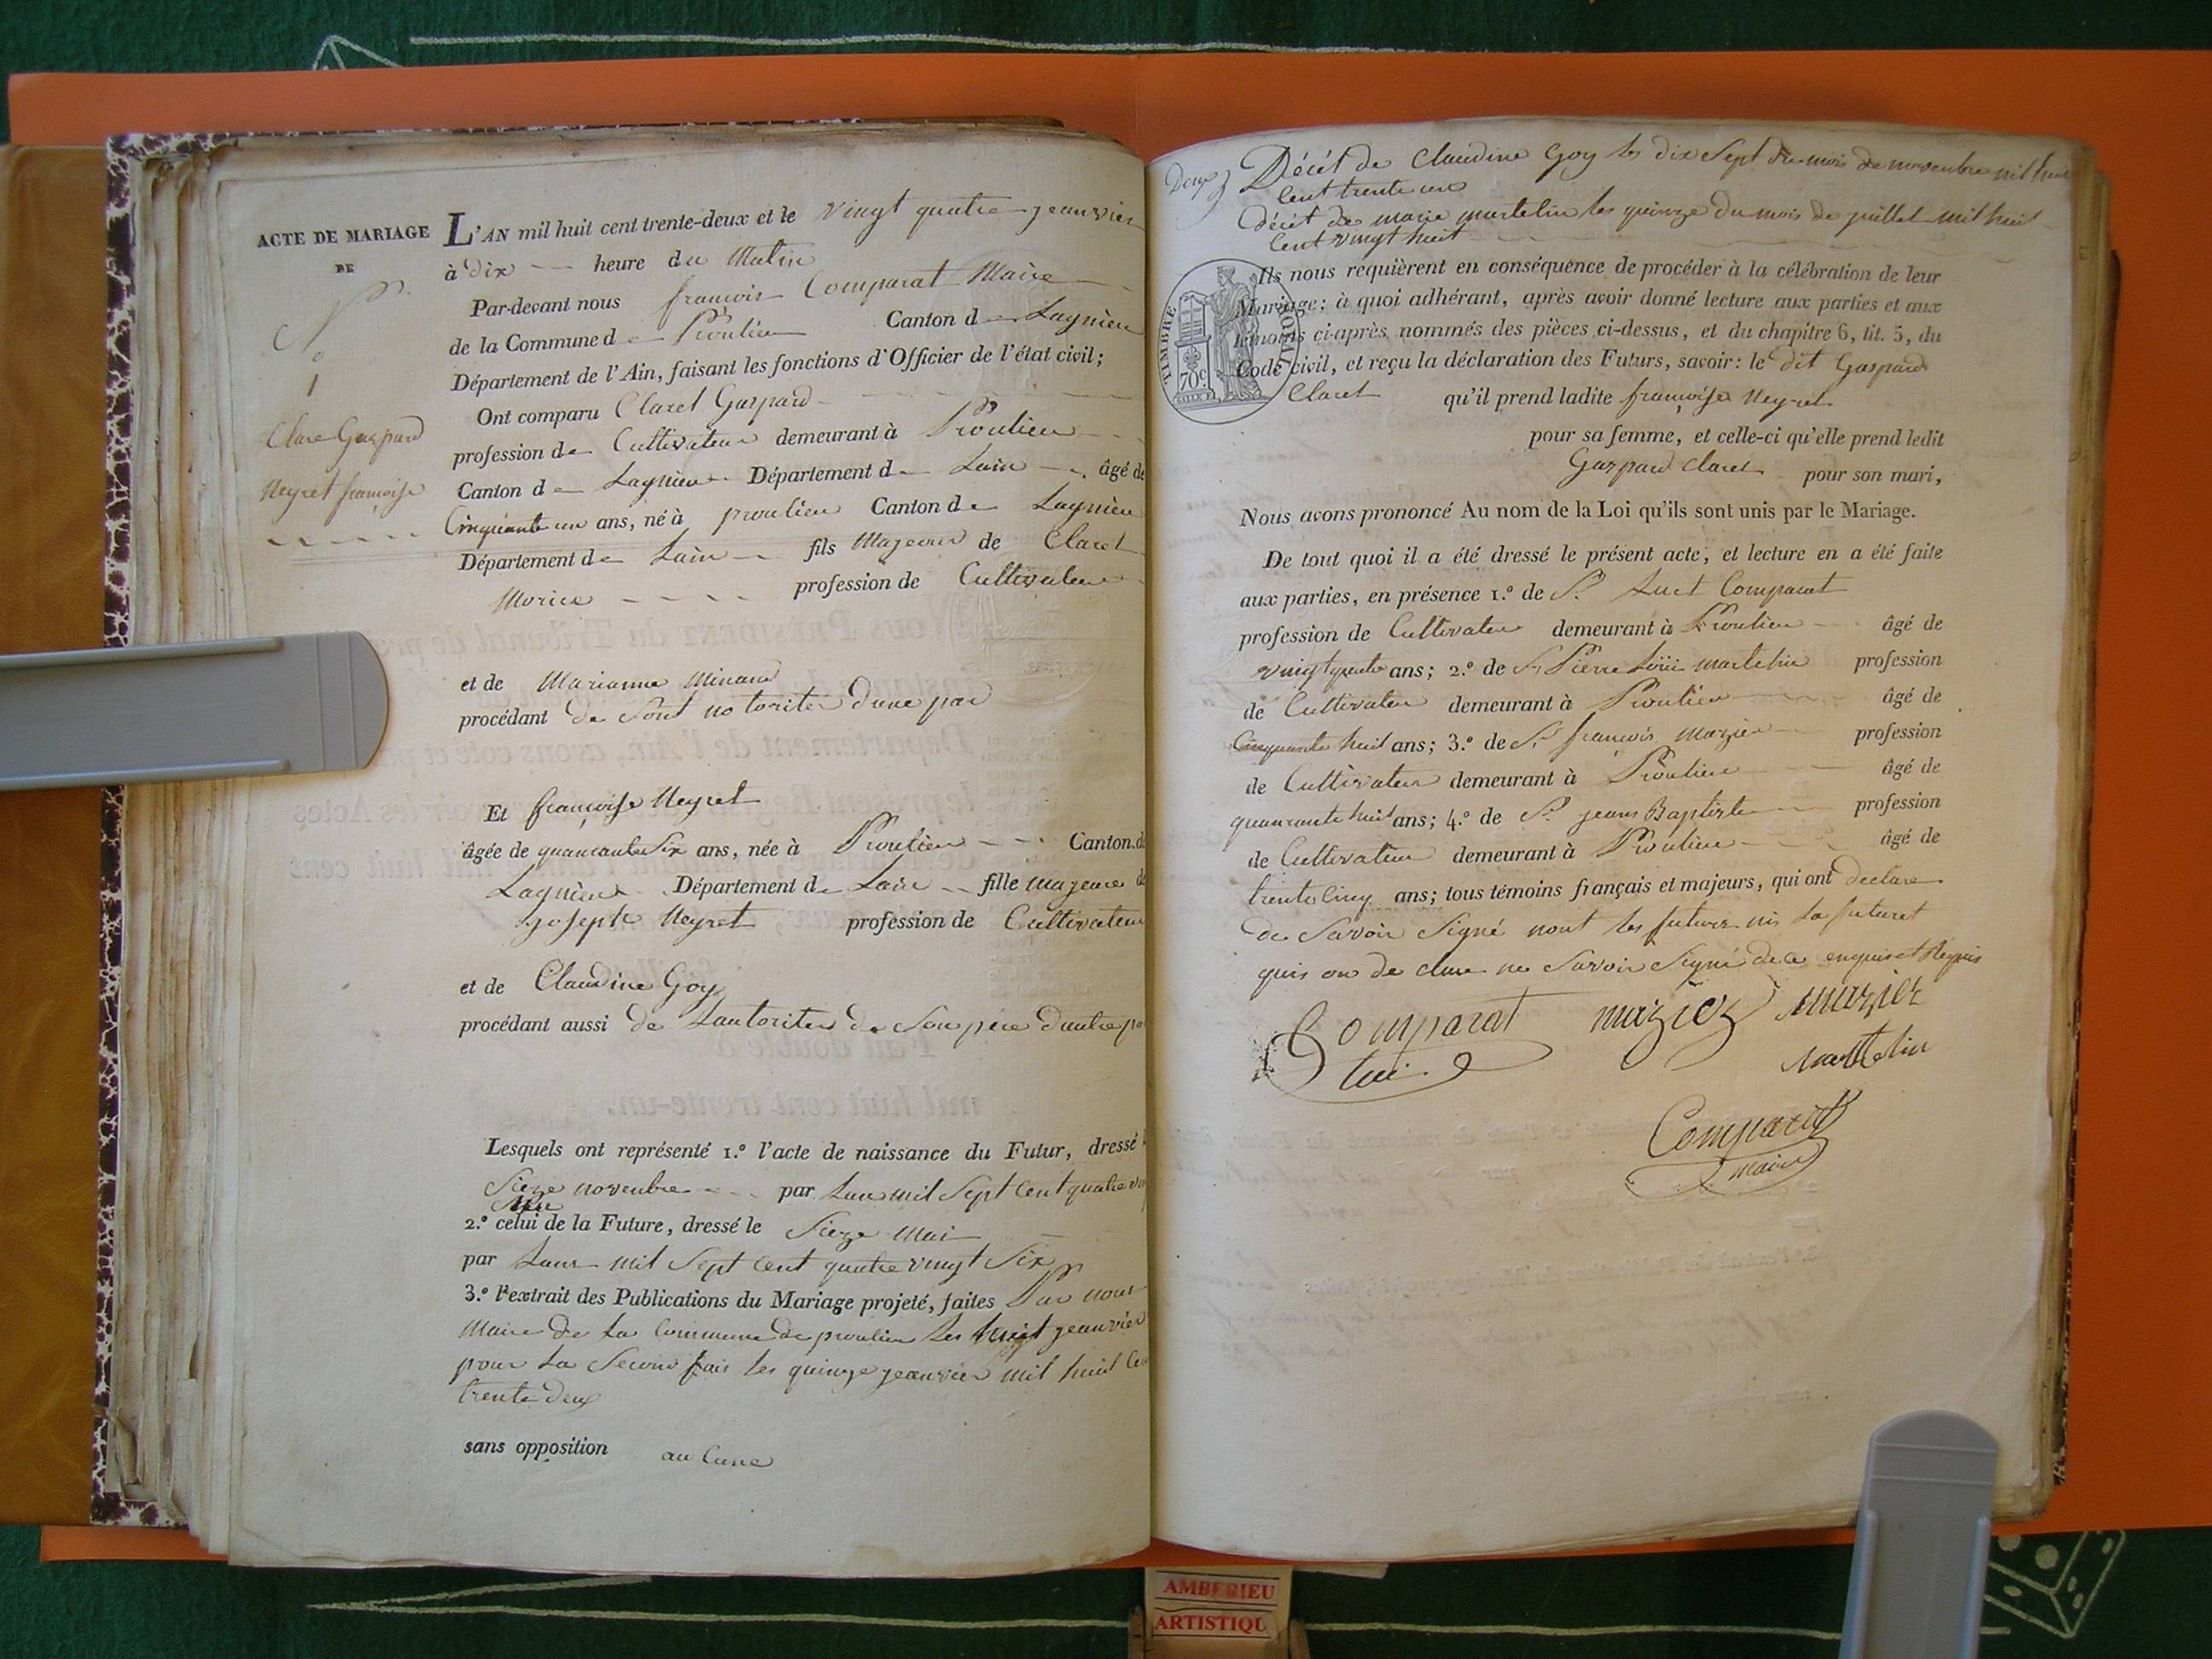 ACTE DE MARIAGE
DE
N.º
1
Claret Gaspard
Neyret françoise
L'AN mil huit cent trente-deux et le vingt quatre jeanvier
à dix heure du Matin
Par-devant nous françois Comparat Maire
de la Commune de Proulieu Canton de Lagnieu
Département de l'Ain, faisant les fonctions d'Officier de l'état civil;
Ont comparu Claret Gaspard
profession de Cultivateur demeurant à Proulieu
Canton de Lagnieu Département de Lain âgé de
Cinquante un ans, né à proulieu Canton de Lagnieu
Département de Lain fils Majeur de Claret
Morice profession de Cultivateur
et de Marianne Minand
procédant de Sont notoriter dune par
Et françoise Neyret
âgée de quarante Six ans, née à Proulieu Canton de
Lagnieu Département de Lain fille majeure de
joseph Neyret profession de Cultivateur
et de Claudine Goy
procédant aussi de Lautoriter de Son père dautre par
Lesquels ont représenté 1.º l'acte de naissance du Futur, dressé
Sieze novembre par Lan mil Sept Cent quatre
2.º celui de la Future, dressé le Sieze Mai
par Lans mil Sept Cent quatre vingt Six
3.º l'extrait des Publications du Mariage projeté, faites Par nous
Maire de La Commune de proulieu Les huit jeanvier
pour La Second fais les quinze jeanvier mil huit Cen
trente deux
sans opposition au Cune
Deux
Décét de Claudine Goy les dix Sept du mois de novembre mil huit
Cent trente un
décét de marie martelin les quinze du mois de juillet mil huit
Cent vingt huit
TIMBRE ROYAL
70c
Ils nous requièrent en conséquence de procéder à la célébration de leur
Mariage; à quoi adhérant, après avoir donné lecture aux parties et aux
témoins ci-après nommés des pièces ci-dessus, et du chapitre 6, tit. 5, du
Code civil, et reçu la déclaration des Futurs, savoir: le dit Gaspard
Claret qu'il prend ladite françoise Neyret
pour sa femme, et celle-ci qu'elle prend ledit
Gaspard Claret pour son mari,
Nous avons prononcé Au nom de la Loi qu'ils sont unis par le Mariage.
De tout quoi il a été dressé le présent acte, et lecture en a été faite
aux parties, en présence 1.º de S.r Luct Comparat
profession de Cultivateur demeurant à Proulieu âgé de
vingt quatre ans; 2.º de S.r Pierre Loüi martelin profession
de Cultivateur demeurant à Proulieu âgé de
Cinquante huit ans; 3.º de S.r françois Mazier profession
de Cultivateur demeurant à Proulieu âgé de
quarante huit ans; 4.º de S.r jean Baptiste profession
de Cultivateur demeurant à Proulieu âgé de
trente Cinq ans; tous témoins français et majeurs, qui ont declare
de Savoir Signé nont les futurs nis La futuret
quis on de clare ne Savoir Signé de ce enquis et Requis
Comparat mazier mazier
Lui martelin
Comparat
maire
AMBERIEU
ARTISTIQU